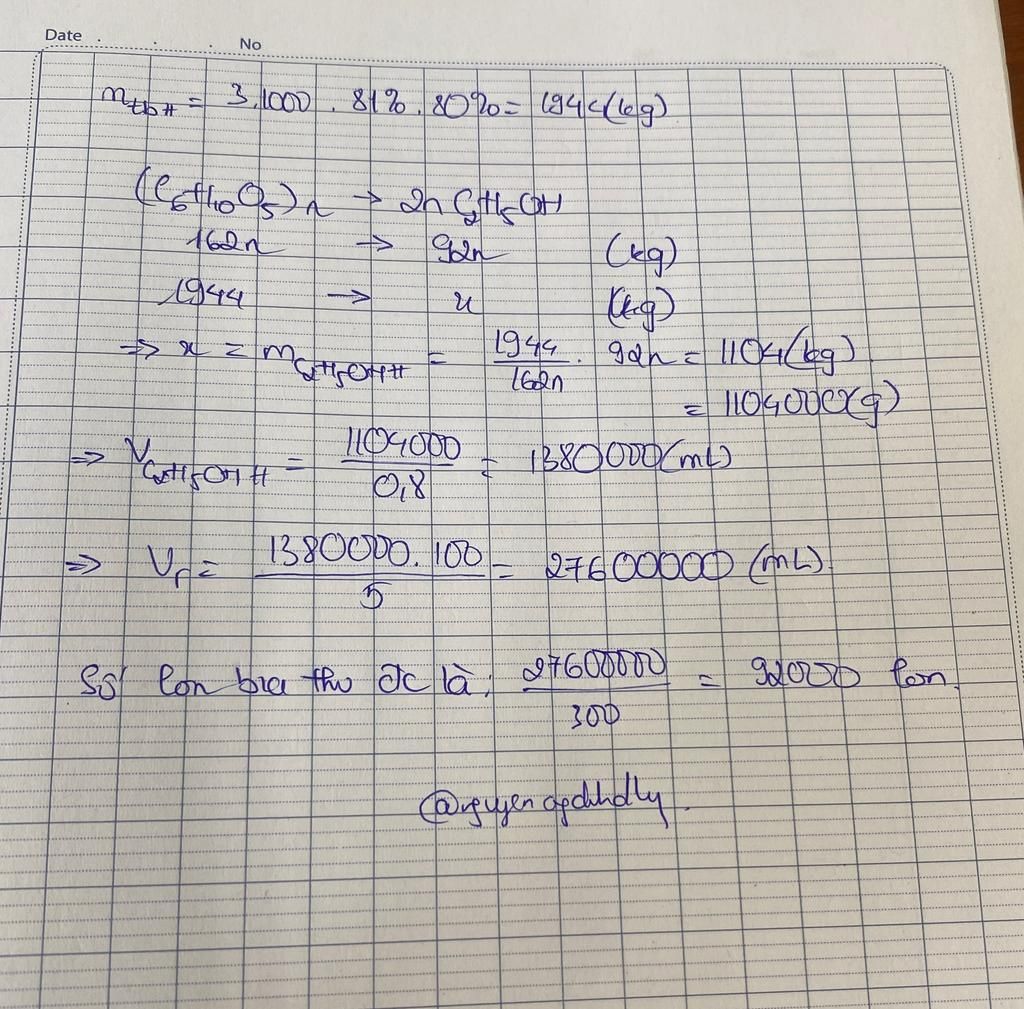 Date . . . No
m tbH = 3.1000 . 81% . 80% = 1944(kg)
(C6H10O5)n → 2n C2H5OH
162n → 92n (kg)
1944 → x (kg)
=> x = mC2H5OH H = 1944/162n . 92n = 1104(kg)
= 1104000(g)
=> VC2H5OH H = 1104000/0,8 = 1380000(mL)
=> Vr = 1380000.100/5 = 27600000 (mL)
Số lon bia thu đc là: 27600000/300 = 92000 lon.